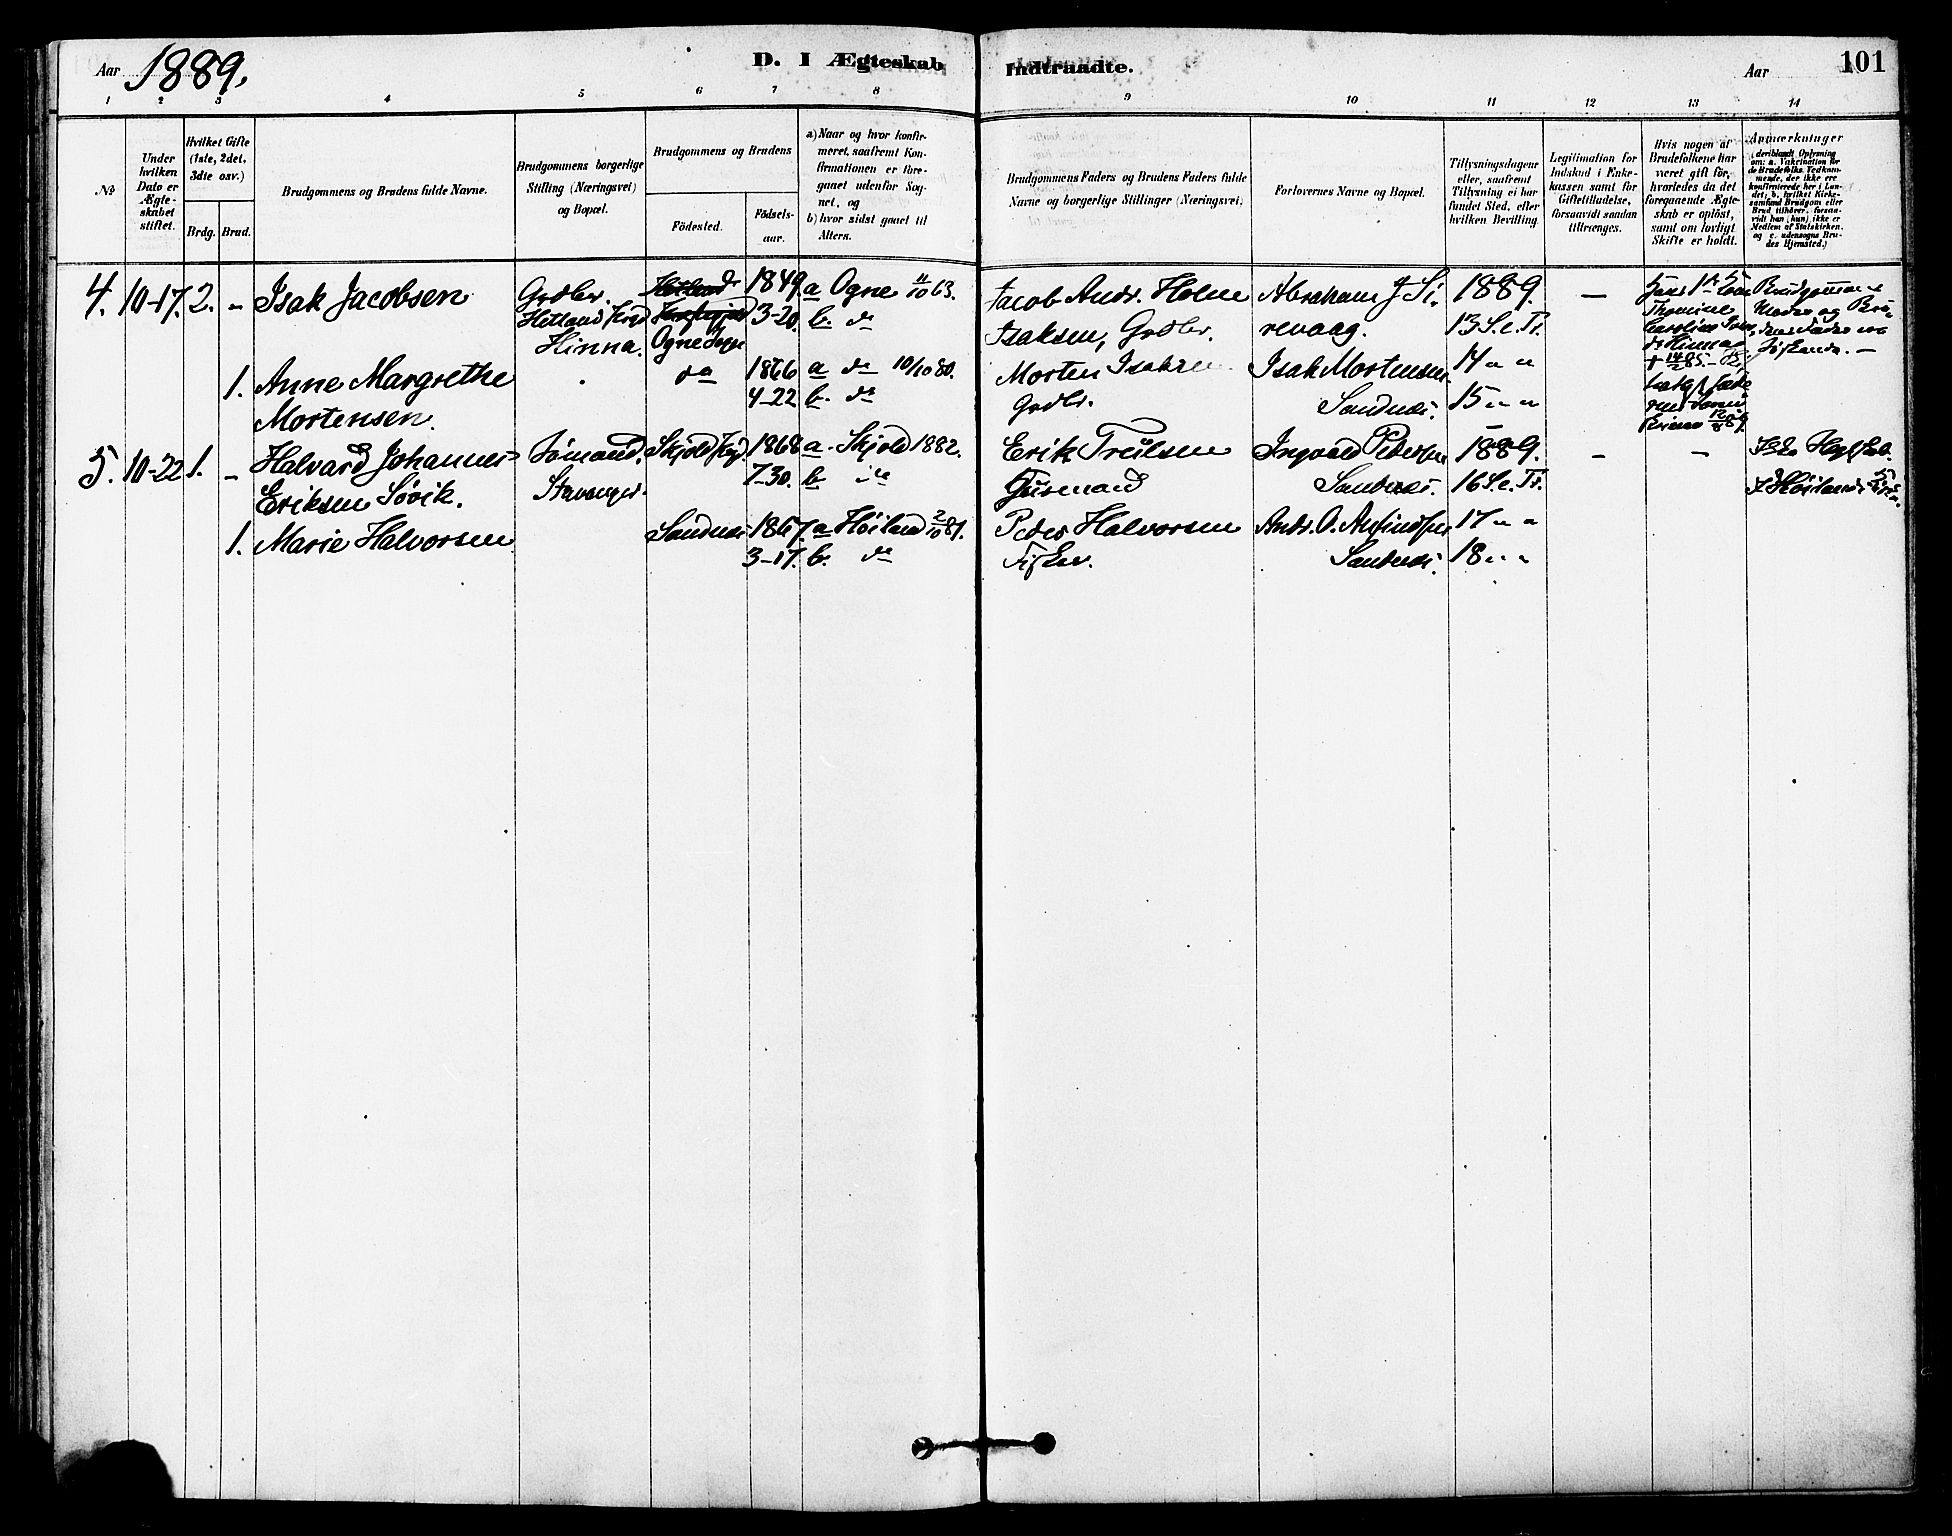 Aar 1889.
D. I Ægteskab Indtraadte.
Aar
101
1 2 3 4 5 6 7 8 9 10 11 12 13 14
№
Under
hvilken
Dato er
Ægte-
skabet
stiftet.
Hvilket Gifte
(1ste, 2det,
3dte osv.)
Brdg. Brud.
Brudgommens og Brudens fulde Navne.
Brudgommens borgerlige
Stilling (Næringsvei)
og Bopæl.
Brudgommens og Brudens
Födested.
Födsels-
aar.
a) Naar og hvor konfir-
meret, saafremt Kon-
firmationen er fore-
gaaet udenfor Sog-
net, og
b) hvor sidst gaaet til
Alters.
Brudgommens Faders og Brudens Faders fulde
Navne og borgerlige Stillinger (Næringsvei).
Forlovernes Navne og Bopæl.
Tillysningsdagene
eller, saafremt
Tillysning ei har
fundet Sted, efter
hvilken Bevilling.
Legitimation for
Indskud i Enke-
kassen samt for
Giftetilladelse,
forsaavidt saadan
tiltrænges.
Hvis nogen af
Brudefolkene har
været gift för,
hvorledes da det
foregaaende Ægte-
skab er oplöst,
samt om lovligt
Skifte er holdt.
Anmærkninger
(deriblandt Oplysning
om: a. Vakcination for
de Brudefolks Vedkom-
mende, der ikke ere
konfirmerede her i Lan-
det; b. hvilket Kirke-
samfund Brudgom eller
Brud tilhörer, forsaa-
vidt han (hun) ikke er
Medlem af Statskirken,
og c. udensogns Bru-
des Hjemsted.)
4. 10-17. 2. - Isak Jacobsen
Grdbr.
Hetland Prgd
Hinna.
Hetland
Ogne Sogn
1849
3-20.
a Ogne 4/10 63.
b. do
Jacob Andr. Holm
Isaksen, Grdbr.
Abraham J. Si-
revaag.
1889.
13 S. e. Tr.
-
Thomine
Brudgommens
Moder og Bru-
dens Fader ere
Søskende. -
1. Anne Margrethe
Mortensen.
do
1866
4-22
a do 10/10 80.
b. do
Morten Isaksen
Grdbr.
Isak Mortensen
Sandnæs.
14 " "
15 " "
5. 10-22 1. - Halvard Johannes
Eriksen Søvik.
Sømand,
Stavanger.
Skjold Prgd.
1868
7-30.
a. Skjold 1882.
b do
Erik Trulsen
Gusmand
Ingvald Pedersen
Sandnæs.
1889.
16 S. e. Tr.
-
-
1. Marie Halvorsen
Sandnæs
1867.
3-17.
a Høiland 2/10 81.
b. do
Peder Halvorsen
Fisker.
Andr. O. Anfindsen
Sandnæs.
17 " "
18 " "